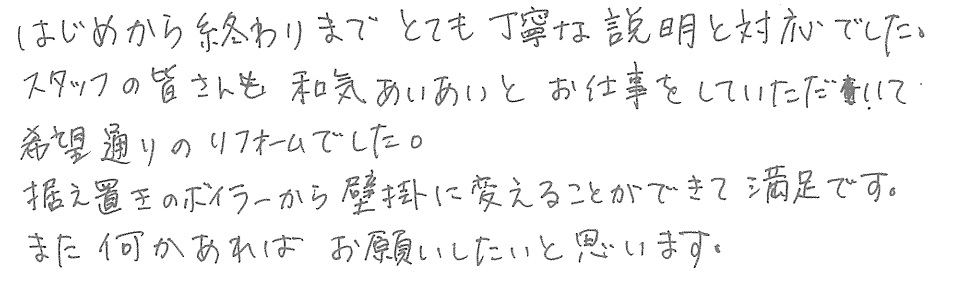 はじめから終わりまでとても丁寧な説明と対応でした。
スタッフの皆さんも和気あいあいとお仕事をしていただいて
希望通りのリフォームでした。
据え置きのボイラーから壁掛に変えることができて満足です。
また何かあればお願いしたいと思います。